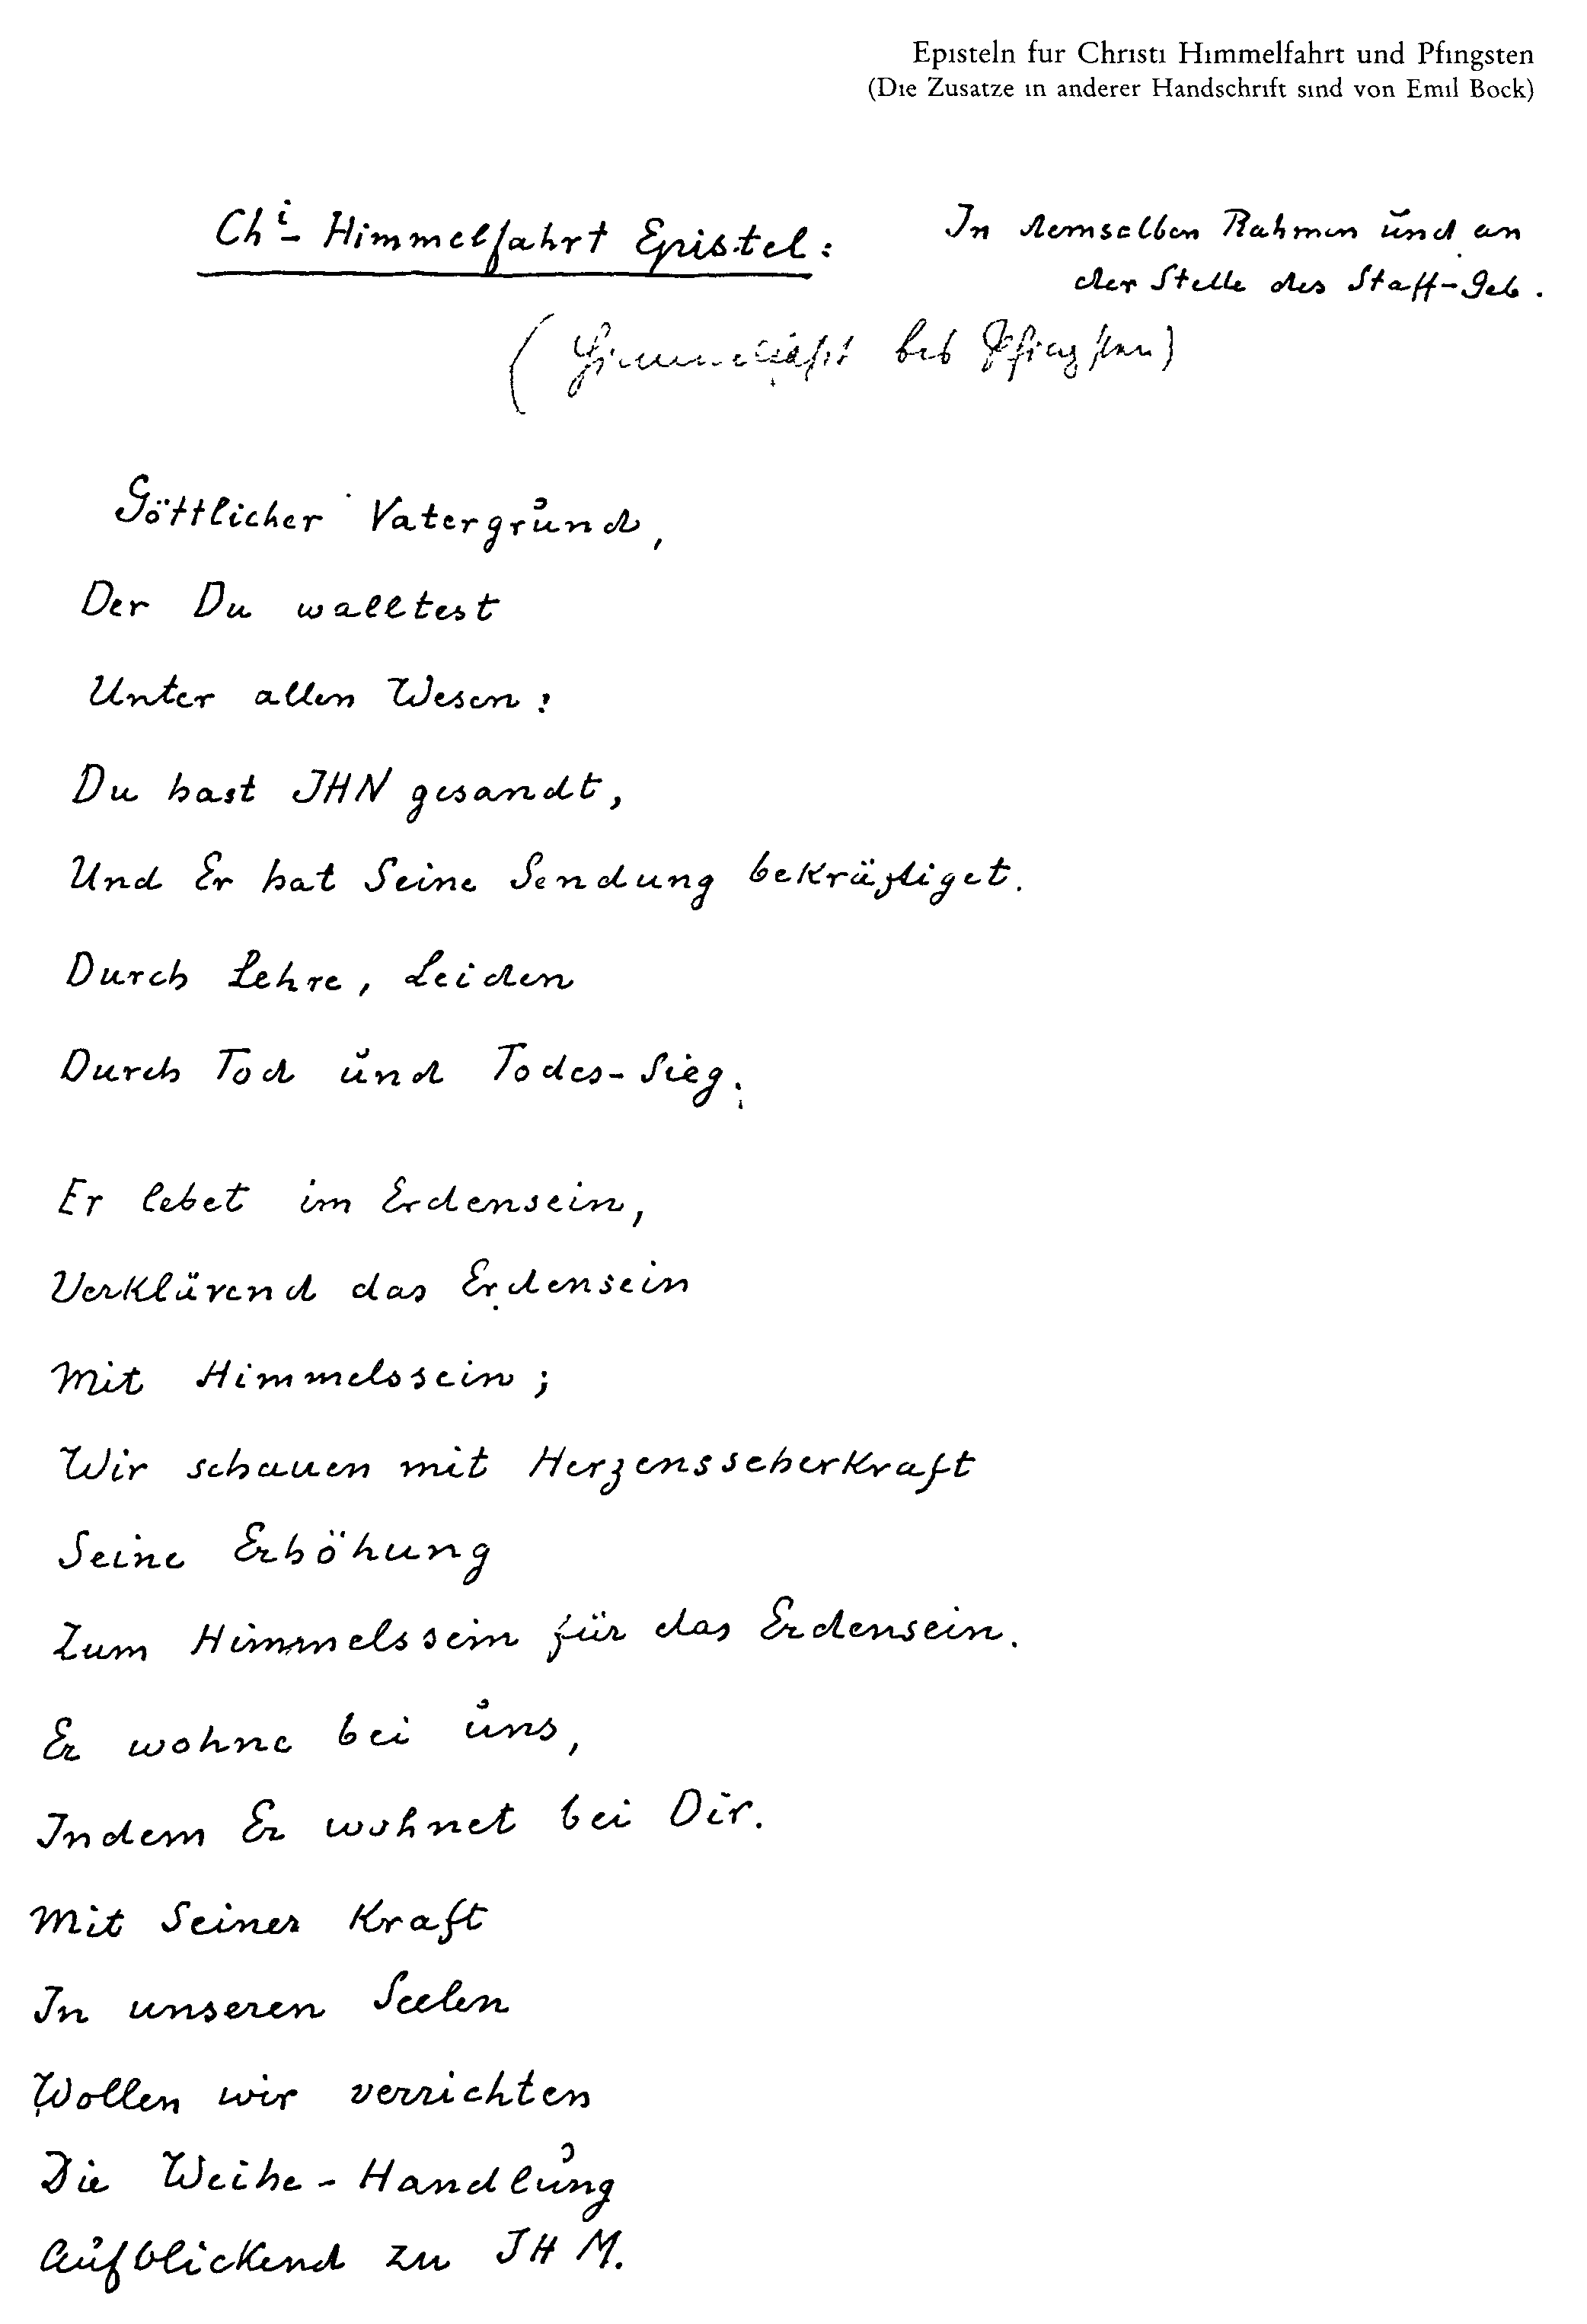 Episteln fur Christi Himmelfahrt und Pfingsten
(Die Zusatze in anderer Handschrift sind von Emil Bock)
Chi - Himmelfahrt Epistel:
In demselben Rahmen und an
der Stelle des Staff-Geb.
(Himmelfahrt bis Pfingsten)
Göttlicher Vatergrund,
Der Du walltest
Unter allen Wesen:
Du hast IHN gesandt,
Und Er hat Seine Sendung bekräftiget.
Durch Lehre, Leiden
Durch Tod und Todes-Sieg.
Er lebet im Erdensein,
Verklärend das Erdensein
Mit Himmelssein;
Wir schauen mit Herzensseherkraft
Seine Erhöhung
Zum Himmelssein für das Erdensein.
Er wohne bei uns,
Indem Er wohnet bei Dir.
Mit Seiner Kraft
In unseren Seelen
Wollen wir verrichten
Die Weihe-Handlung
Aufblickend zu IHM.